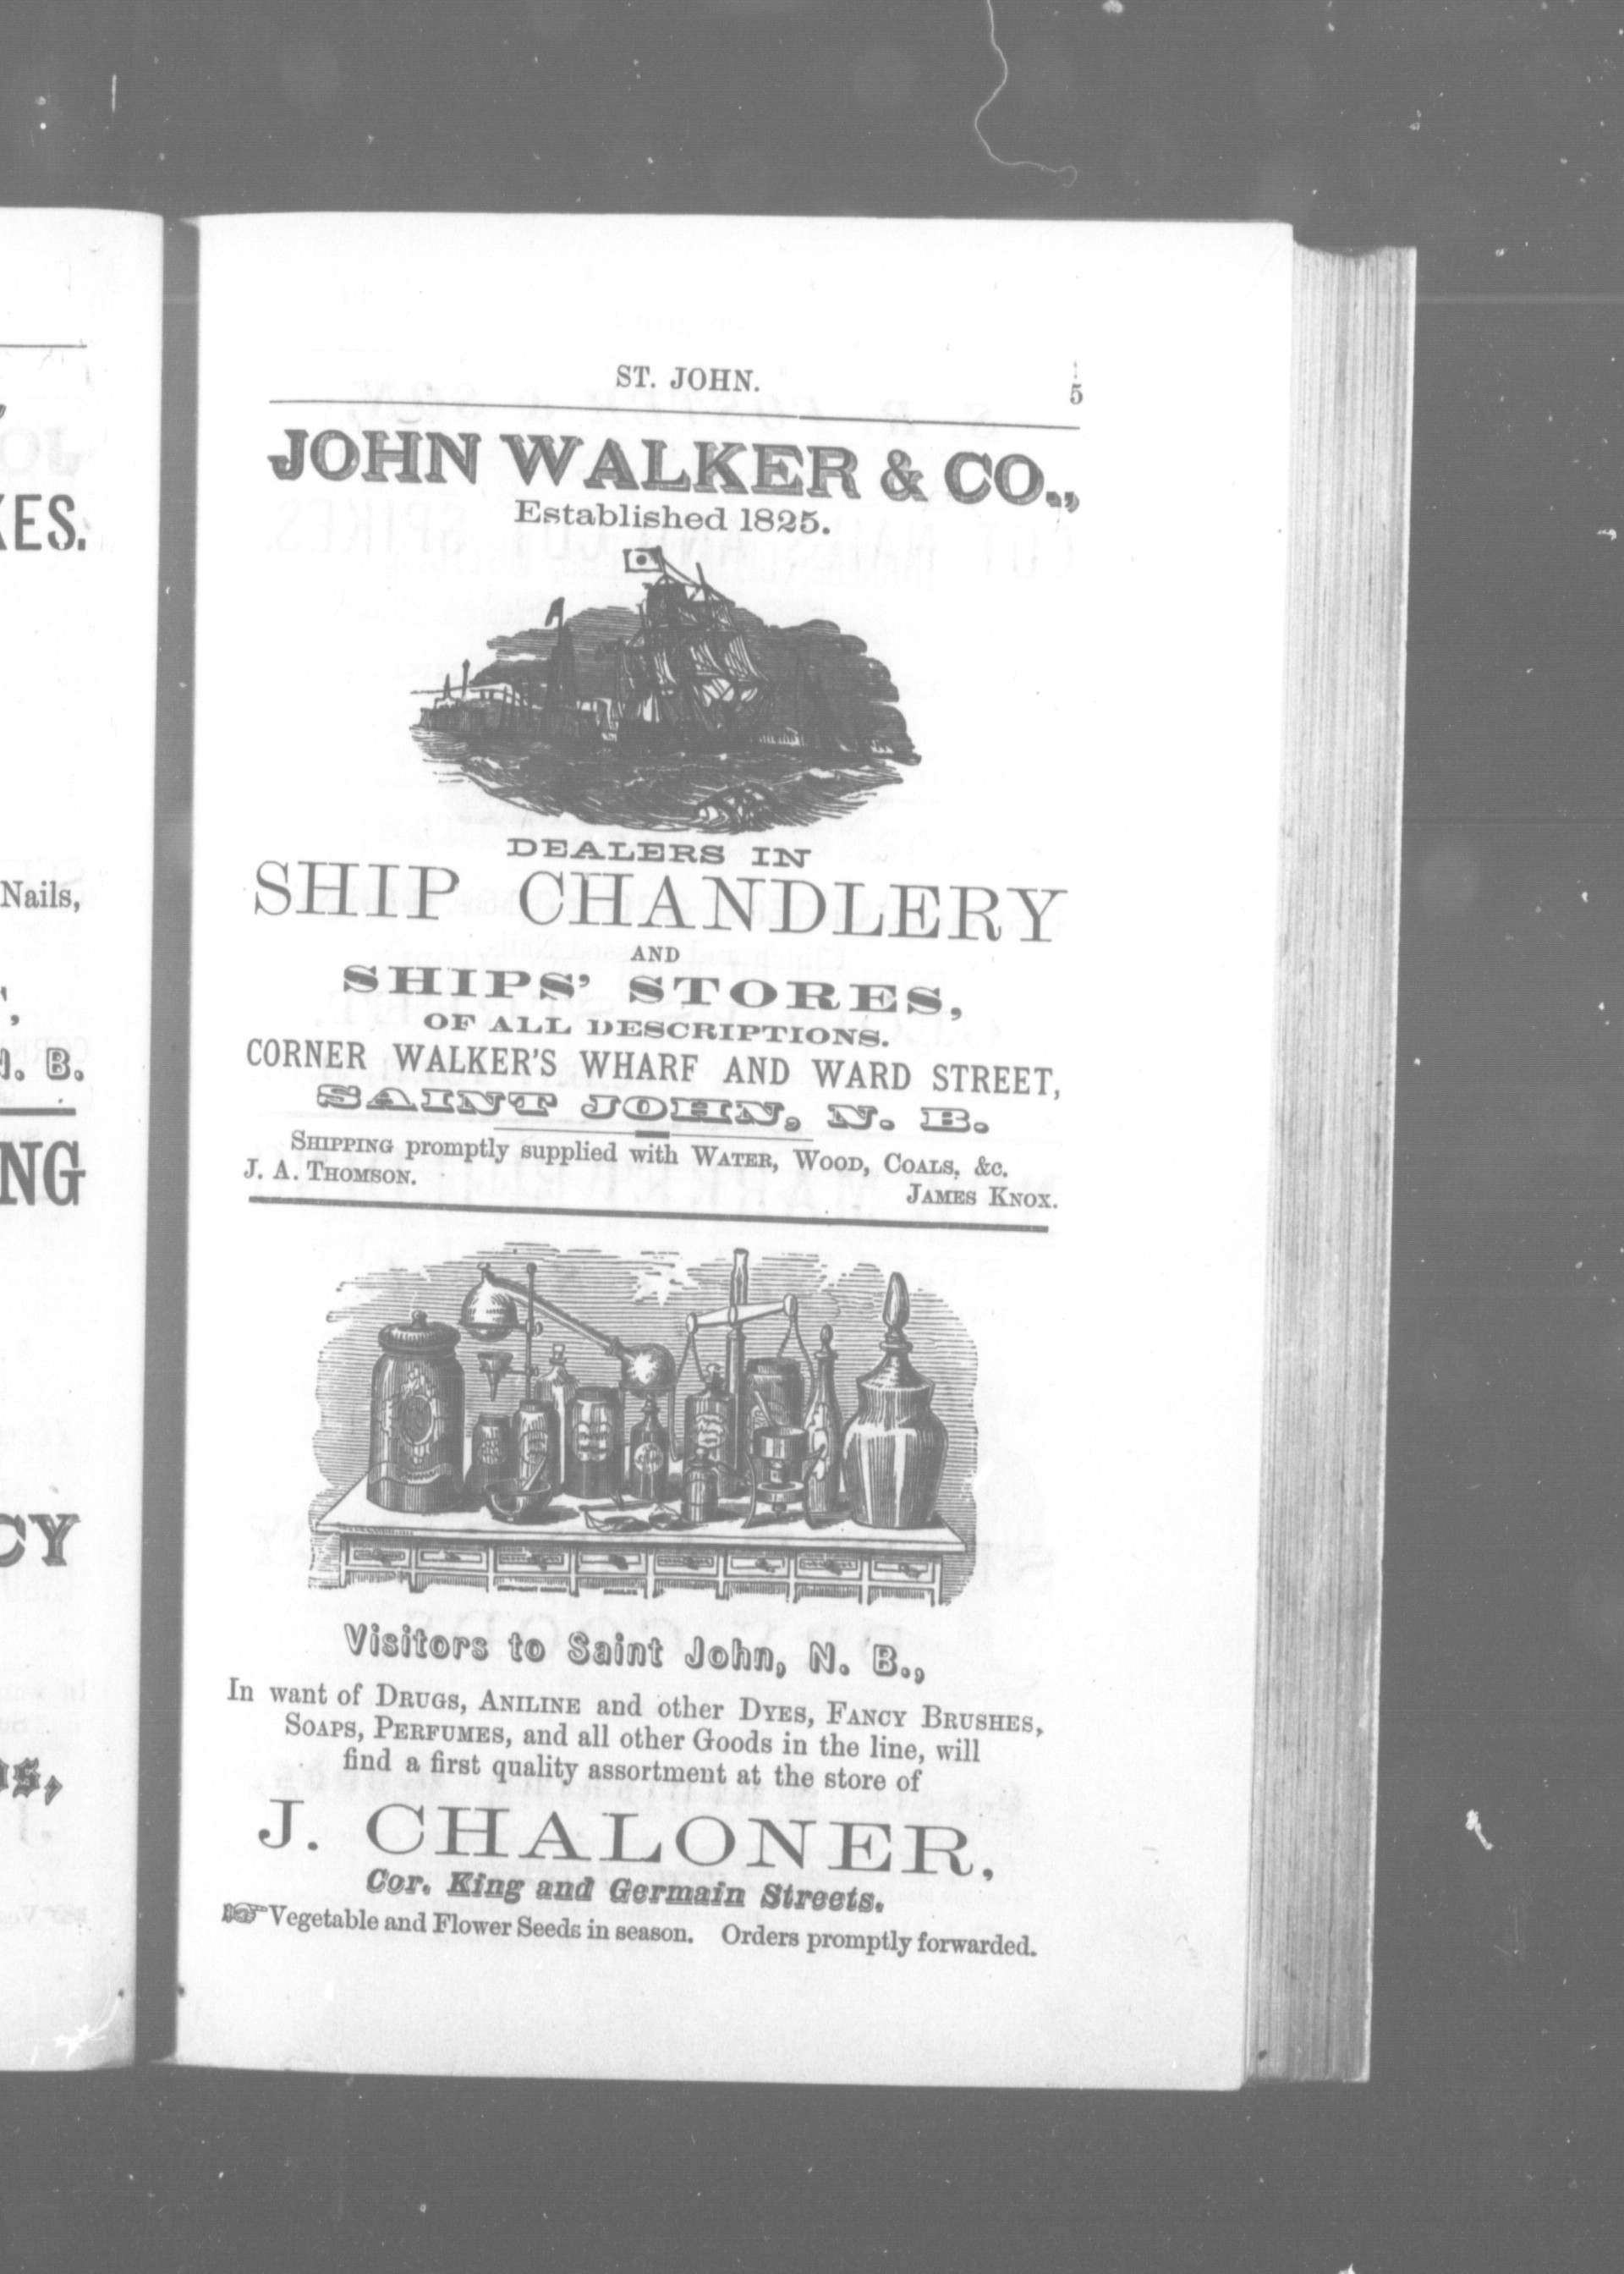 ST. JOHN.
5
JOHN WALKER & CO.,
Established 1825.
DEALERS IN
SHIP CHANDLERY
AND
SHIPS' STORES,
OF ALL DESCRIPTIONS.
CORNER WALKER'S WHARF AND WARD STREET,
SAINT JOHN, N. B.
SHIPPING promptly supplied with WATER, WOOD, COALS, &c.
J. A. THOMSON.
JAMES KNOX.
Visitors to Saint John, N. B.,
In want of DRUGS, ANILINE and other DYES, FANCY BRUSHES,
SOAPS, PERFUMES, and all other Goods in the line, will
find a first quality assortment at the store of
J. CHALONER,
Cor. King and Germain Streets.
☞Vegetable and Flower Seeds in season. Orders promptly forwarded.
KES.
Nails,
N. B.
NG
CY